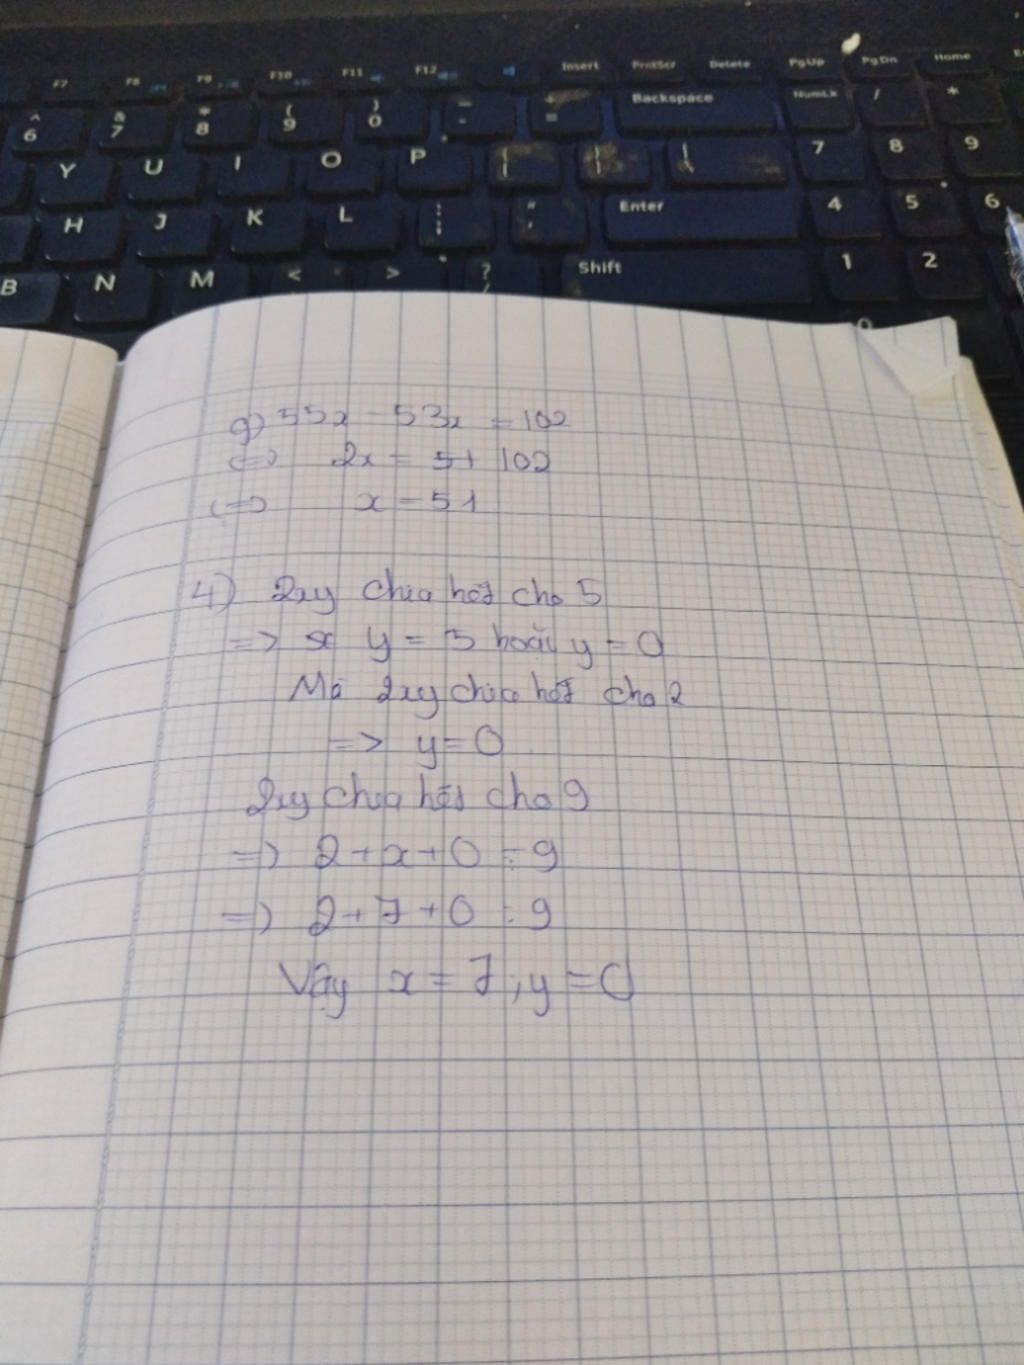 F7 F8 F9 F10 F11 F12 Insert PrntScr Delete PgUp PgDn Home
^ 6 & 7 * 8 ( 9 ) 0 - + = Backspace NumLk / *
Y U I O P [ ] \ 7 8 9
H J K L ; " ' Enter 4 5 6
B N M < > ? / Shift 1 2
0
g) 55x - 53x = 102
<=> 2x = 102
<=> x = 51
4) 2xy chia hết cho 5
=> y = 5 hoặc y = 0
Mà 2xy chia hết cho 2
=> y = 0
2xy chia hết cho 9
=> 2 + x + 0 : 9
=> 2 + 7 + 0 : 9
Vậy x = 7 ; y = 0